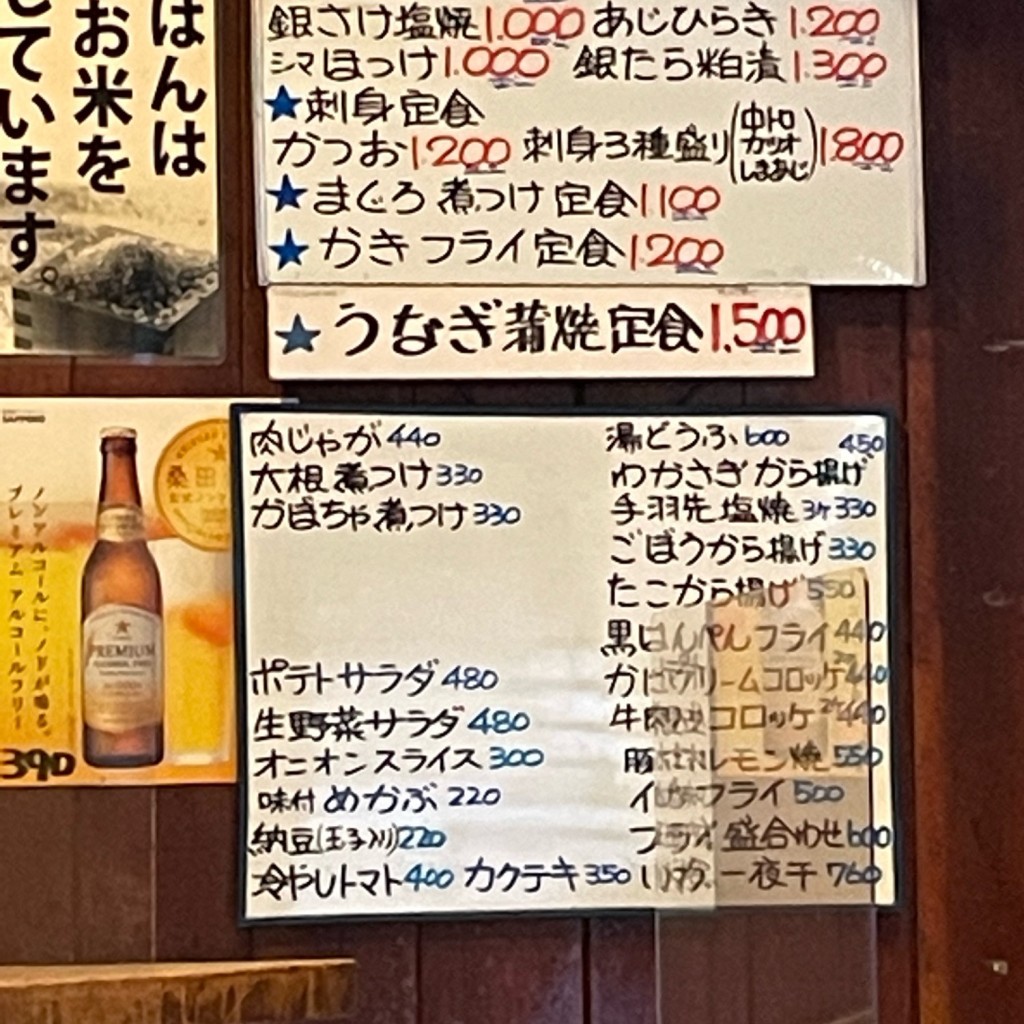 はんは
お米を
しています。
銀さけ塩焼1.000 あじひらき1.200
シマほっけ1.000 銀たら粕漬1.300
★刺身定食
かつお1200 刺身3種盛り(中トロ カツオ しまあじ)1.800
★まぐろ煮つけ定食1100
★かきフライ定食1200
★うなぎ蒲焼定食1.500
SAPPORO
ノンアルコールに、ノドが鳴る。
プレミアム アルコールフリー
桑田
PREMIUM
390
肉じゃが440
大根煮つけ330
かぼちゃ煮つけ330
ポテトサラダ480
生野菜サラダ480
オニオンスライス300
味付めかぶ220
納豆(玉子入り)220
冷やしトマト400 カクテキ350
湯どうふ600
わかさぎから揚げ450
手羽先塩焼3ケ330
ごぼうから揚げ330
たこから揚げ550
黒はんぺんフライ440
かにクリームコロッケ2ケ440
牛肉コロッケ2ケ440
豚レモン焼550
イカフライ500
フライ盛合わせ600
一夜干760